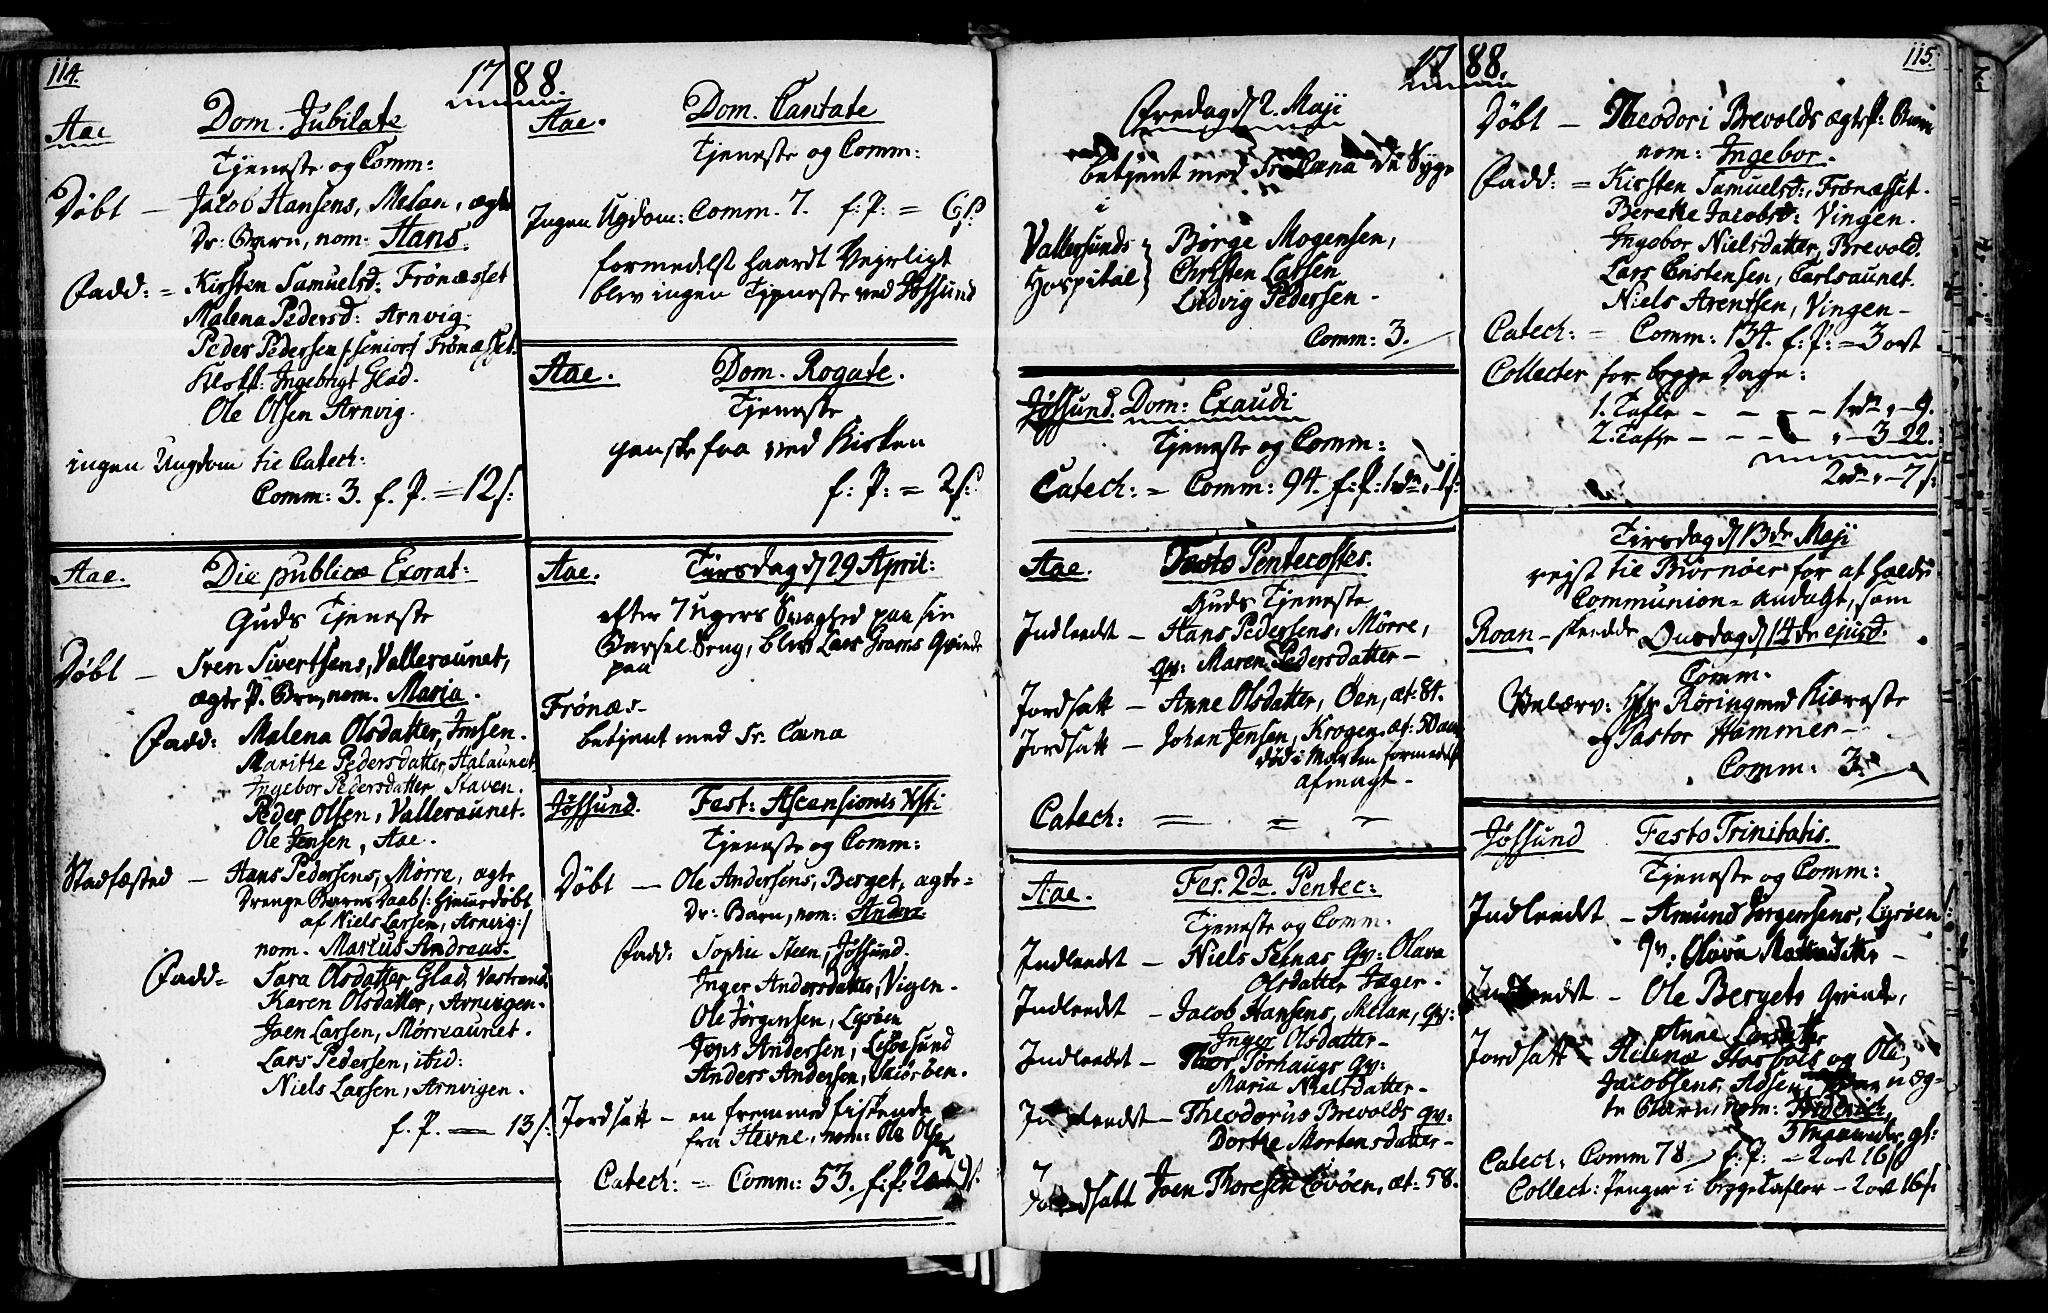 114.
1788.
Aae Dom. Jubilate
Tjeneste og Comm:
Døbt — Jacob Hansens, Melan, ægte
Dr: Barn, nom: Hans.
Fadd: = Kirsten Samuelsd: Frönæsset
Malena Pedersd: Arnvig.
Peder Pedersen /:senior:/ Frönæsset.
Klokk: Ingebrigt Glad.
Ole Olsen Arnvig.
ingen Ungdom til Catech:
Comm: 3. f. P. = 12 s:
Aae. Die publicæ Exorat:
Guds Tjeneste
Døbt — Sven Sivertsens, Valleraunet,
ægte P. Brn, nom. Maria.
Fadd: Malena Olsdatter, Imsen.
Marithe Pedersdatter, Halaunet,
Ingebor Pedersdatter, Staven.
Peder Olsen, Valleraunet.
Ole Jensen, Aae.
Stadfæsted — Hans Pedersens, Mørre, ægte
Drenge Barns Daab /: hjemmedøbt
af Niels Larsen, Arnvig :/
nom. Marcus Andreas.
Fadd= Sara Olsdatter Glad, Vastrand,
Karen Olsdatter, Arnvigen.
Joen Larsen, Mørreaunet.
Lars Pedersen, ibid:
Niels Larsen, Arnvigen.
f. P. — 13 s:
Aae. Dom. Cantate
Tjeneste og Comm:
Ingen Ugdom: Comm. 7. f: P: = 6 s:
formedelst haardt Vejrligt
blev ingen Tjeneste ved Jössund
Aae. Dom. Rogate.
Tjeneste
ganske faa ved Kirken
f: P: = 2 s:
Aae. Tirsdag d 29 April:
efter 7 Ugers Svaghed paa sin
Barsel Seng, blev Lars Grams Qvinde
paa
Frönæs
betjent med Sr: Cæna
Jössund. Fest: Ascensionis Xsti
Tjeneste og Comm:
Døbt — Ole Andersens, Berget, ægte=
Dr: Barn, nom: Anders
Fadd: Sophie Steen, Jössund.
Inger Andersdatter, Vigen.
Ole Jørgensen, Lysöen
Jens Andersen, Lysöesund
Anders Andersen, Skiørben.
Jordsatt — en fremmed fiskende
fra Hevne, nom: Ole Olsen
Catech: = Comm: 53. f: P: 2 ort 9 s:
1788.
Fredag d 2. Maji
betjent med Sr: Cæna de Syge
i
Vallersunds Hospital } Børge Mogensen,
Christen Larsen
Ludvig Pedersen -
Comm: 3.
Jössund. Dom: Exaudi
Tjeneste og Comm:
Catech: = Comm: 94. f: P: 1 rdr „ 1 s:
Aae. Festo Pentecostes.
Guds Tjeneste
Indleedt — Hans Pedersens, Mörre,
qv: Maren Pedersdatter —
Jordsatt — Anne Olsdatter, Öen, æt: 84.
Jordsatt — Johan Jensen, Krogen, æt: 50 ann
död i Marken formedelst
afmagt -
Catech: = = =
Aae. Fer. 2da Pentec:
Tjeneste og Comm.
Indleedt — Niels Setnæs Qv: Olava
Olsdatter Jæger -
Indleedt — Jacob Hansens, Melan, Qv:
Inger Olsdatter —
Indleedt — Thor Torhaugs Qv:
Maria Nielsdatter -
Indleedt — Theodorus Brevolds qv:
Dorthe Mortensdatter —
Jordsatt Joen Thoresen Lövöen, æt: 58.
115.
Døbt — Theodori Brevolds ægte P: Barn
nom: Ingebor.
Fadd: = Kirsten Samuelsd:, Frönæsset.
Berethe Jacobsd: Vingen.
Ingebor Nielsdatter, Brevold.
Lars Cristensen, Carlsaunet.
Niels Arentsen, Vingen —
Catech: = Comm: 134. f: P: = 3 ort
Collecter for begge Dage:
1. Tafle — — — 1 rdr „ — 9.
2. Tafle — — — „ — 3 22.
2 rdr „ — 7 s:
Tirsdag d 13de Maji
rejst til Biørnöer for at holde
Communion= Andagt, som
Roan — skeedde Onsdag d 14de ejusd:
Comm.
Hr Röring med Kiæreste
og Pastor Hammer —
Comm: 3.
Jössund Festo Trinitatis.
Tjeneste og Comm:
Indleedt — Amund Jørgensens, Lysöen
qv: Olava
Indleedt — Ole Bergets Qvinde,
Anne Larsdatter
Jordsatt — Helenæ og Ole
Jacobsens, uæg-
te Barn, nom:
3 Maaneder gl:
Catech: Comm 78 f: P: = 2 ort 16 s
Collect: Penger i begge Tafler — 2 ort 16 s: